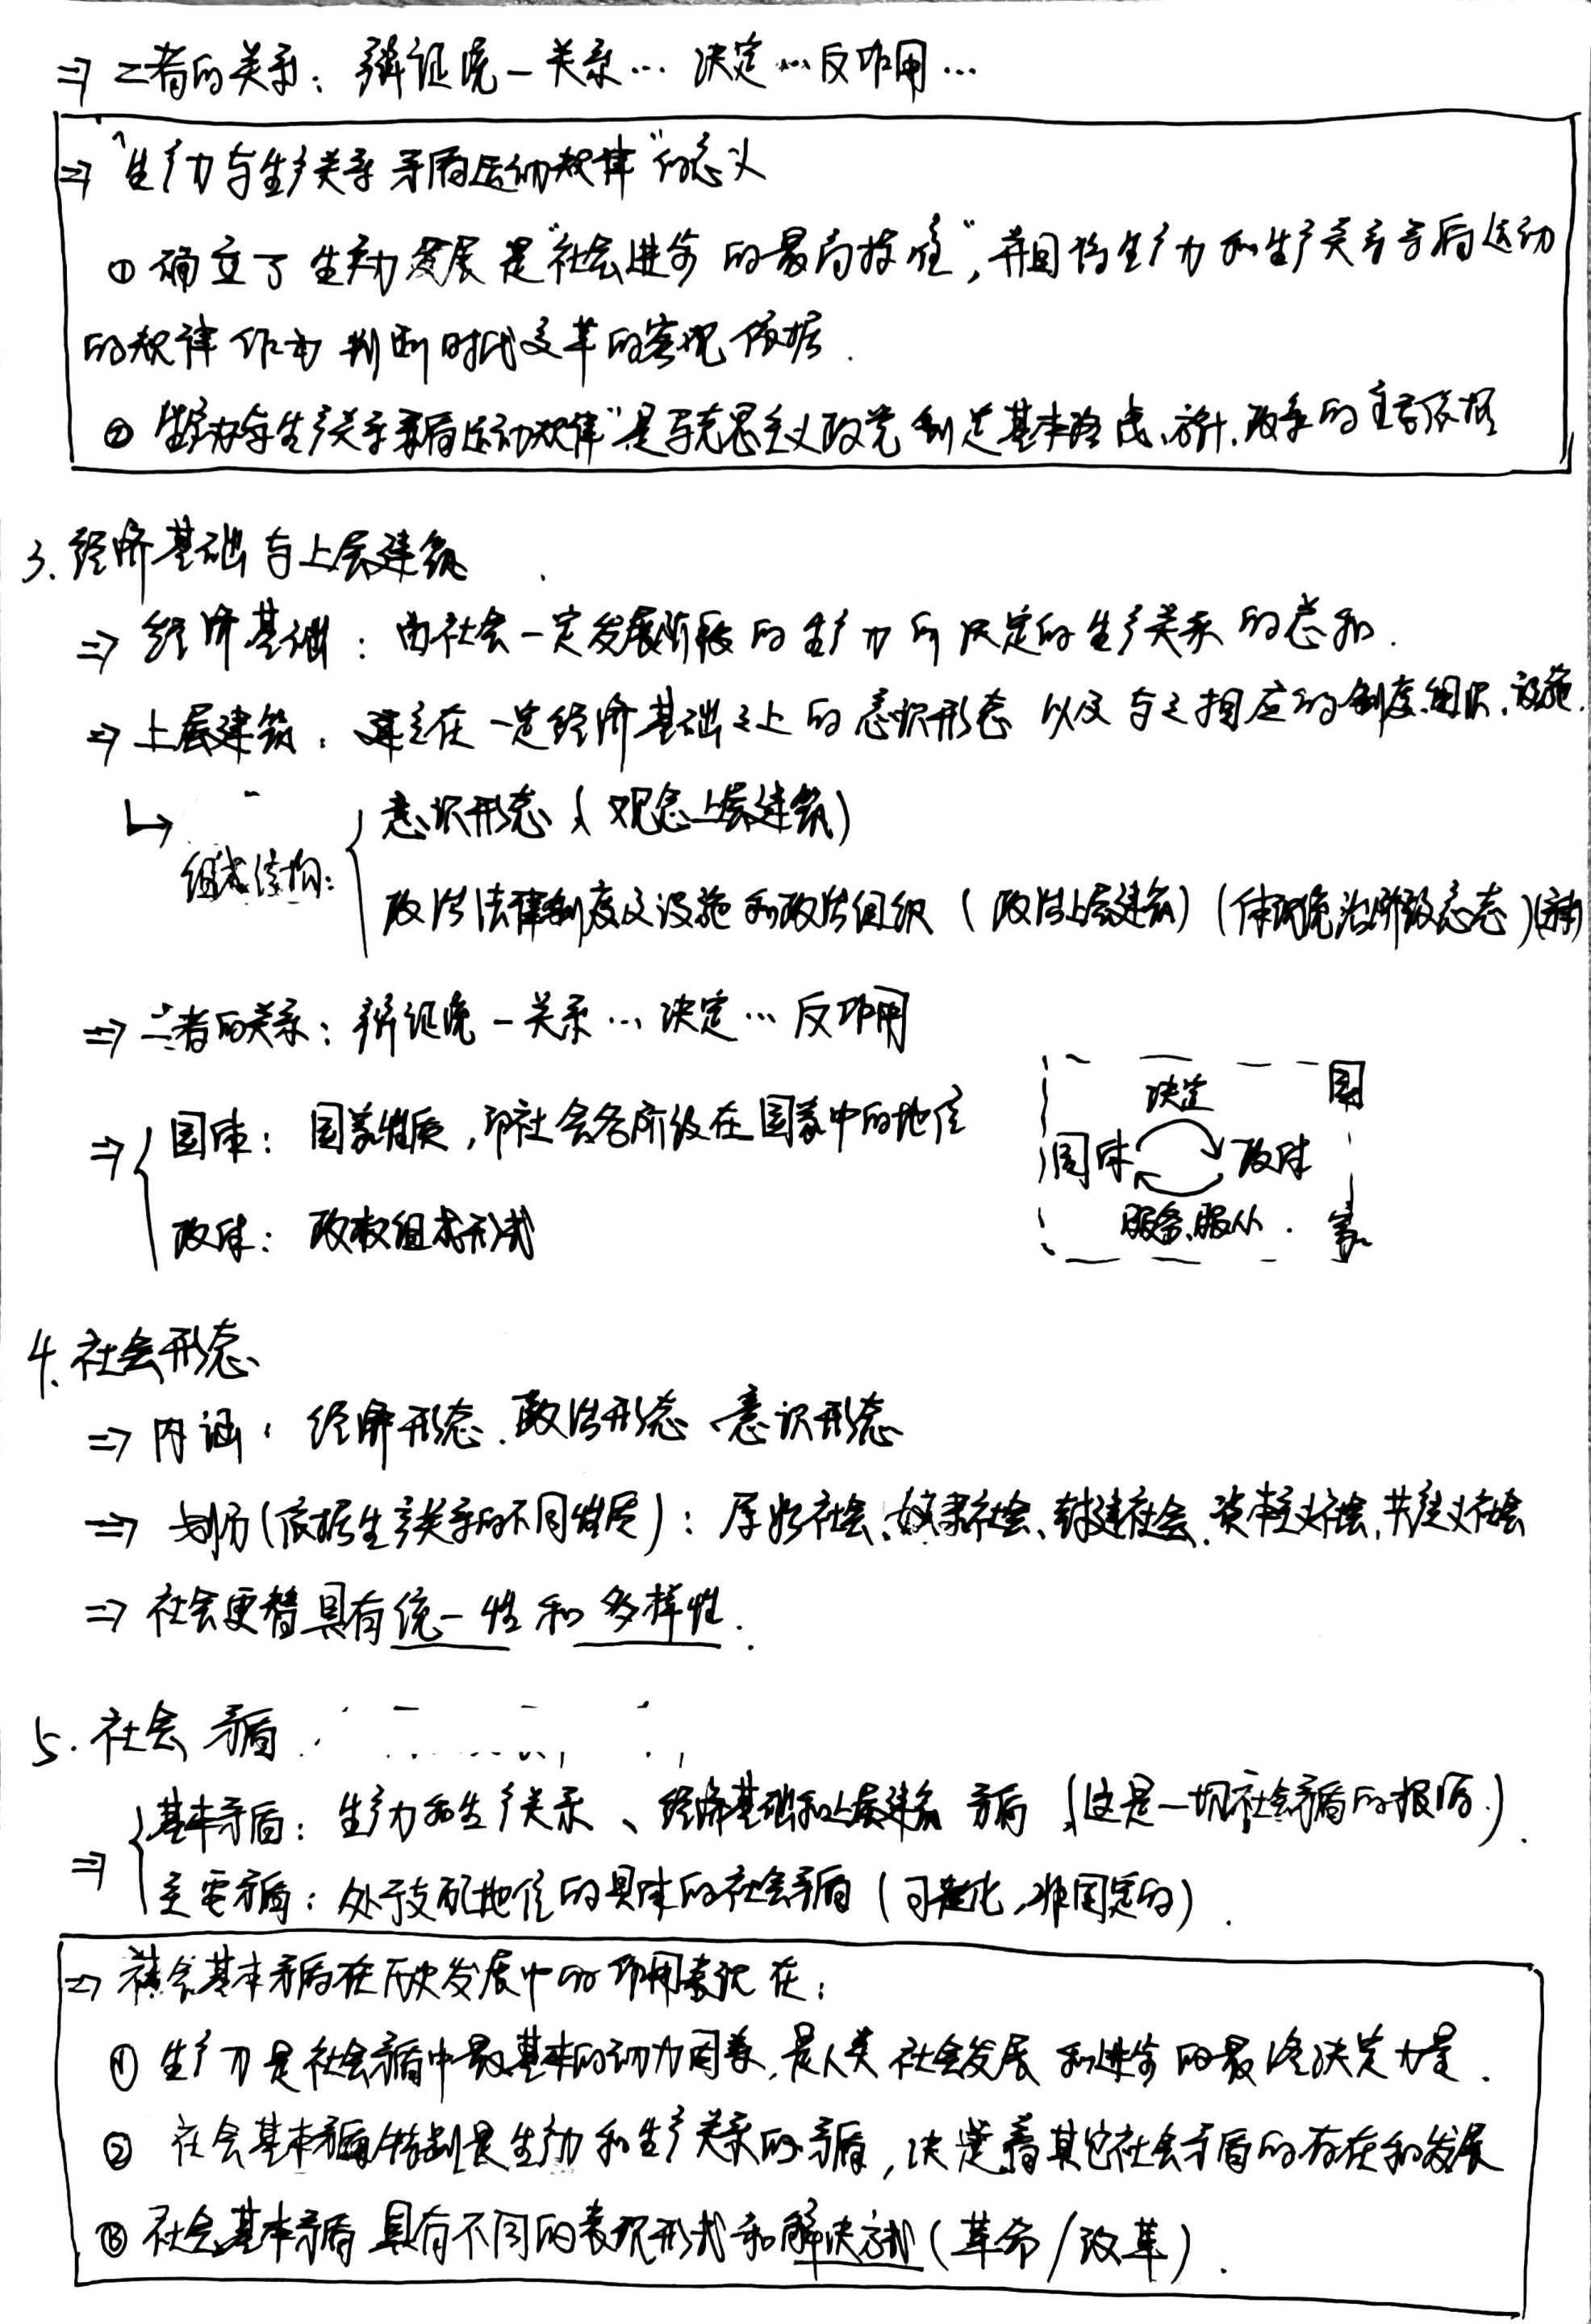 ⇒ 二者的关系：辩证统一关系… 决定…反作用…
⇒ "生产力与生产关系矛盾运动规律"的意义
① 确立了生产力发展是"社会进步的最高标准"，并且将生产力和生产关系矛盾运动
的规律作为判断时代变革的客观依据.
② 生产力与生产关系矛盾运动规律"是马克思主义政党制定基本路线、方针、政策的主要依据
3. 经济基础与上层建筑
⇒ 经济基础：由社会一定发展阶段的生产力所决定的生产关系的总和.
⇒ 上层建筑：建立在一定经济基础之上的意识形态以及与之相应的制度、组织、设施.
↳
组成结构：
意识形态（观念上层建筑）
政治法律制度及设施和政治组织（政治上层建筑）（体现统治阶级意志）
⇒ 二者的关系：辩证统一关系… 决定… 反作用
⇒ 国体：国家性质，即社会各阶级在国家中的地位
政体：政权组成形式
决定 国
国体 政体
服务、服从. 家
4. 社会形态
⇒ 内涵：经济形态、政治形态、意识形态
⇒ 划分（依据生产关系的不同性质）：原始社会、奴隶社会、封建社会、资本主义社会、共产主义社会
⇒ 社会更替具有统一性和多样性.
5. 社会矛盾
⇒ 基本矛盾：生产力和生产关系、经济基础和上层建筑矛盾（这是一切社会矛盾的根源.）.
主要矛盾：处于支配地位的具体的社会矛盾（可变化，非固定的）.
⇒ 社会基本矛盾在历史发展中的作用表现在：
① 生产力是社会矛盾中最基本的动力因素，是人类社会发展和进步的最终决定力量.
② 社会基本矛盾特别是生产力和生产关系的矛盾，决定着其它社会矛盾的存在和发展
③ 社会基本矛盾具有不同的表现形式和解决方式（革命/改革）.